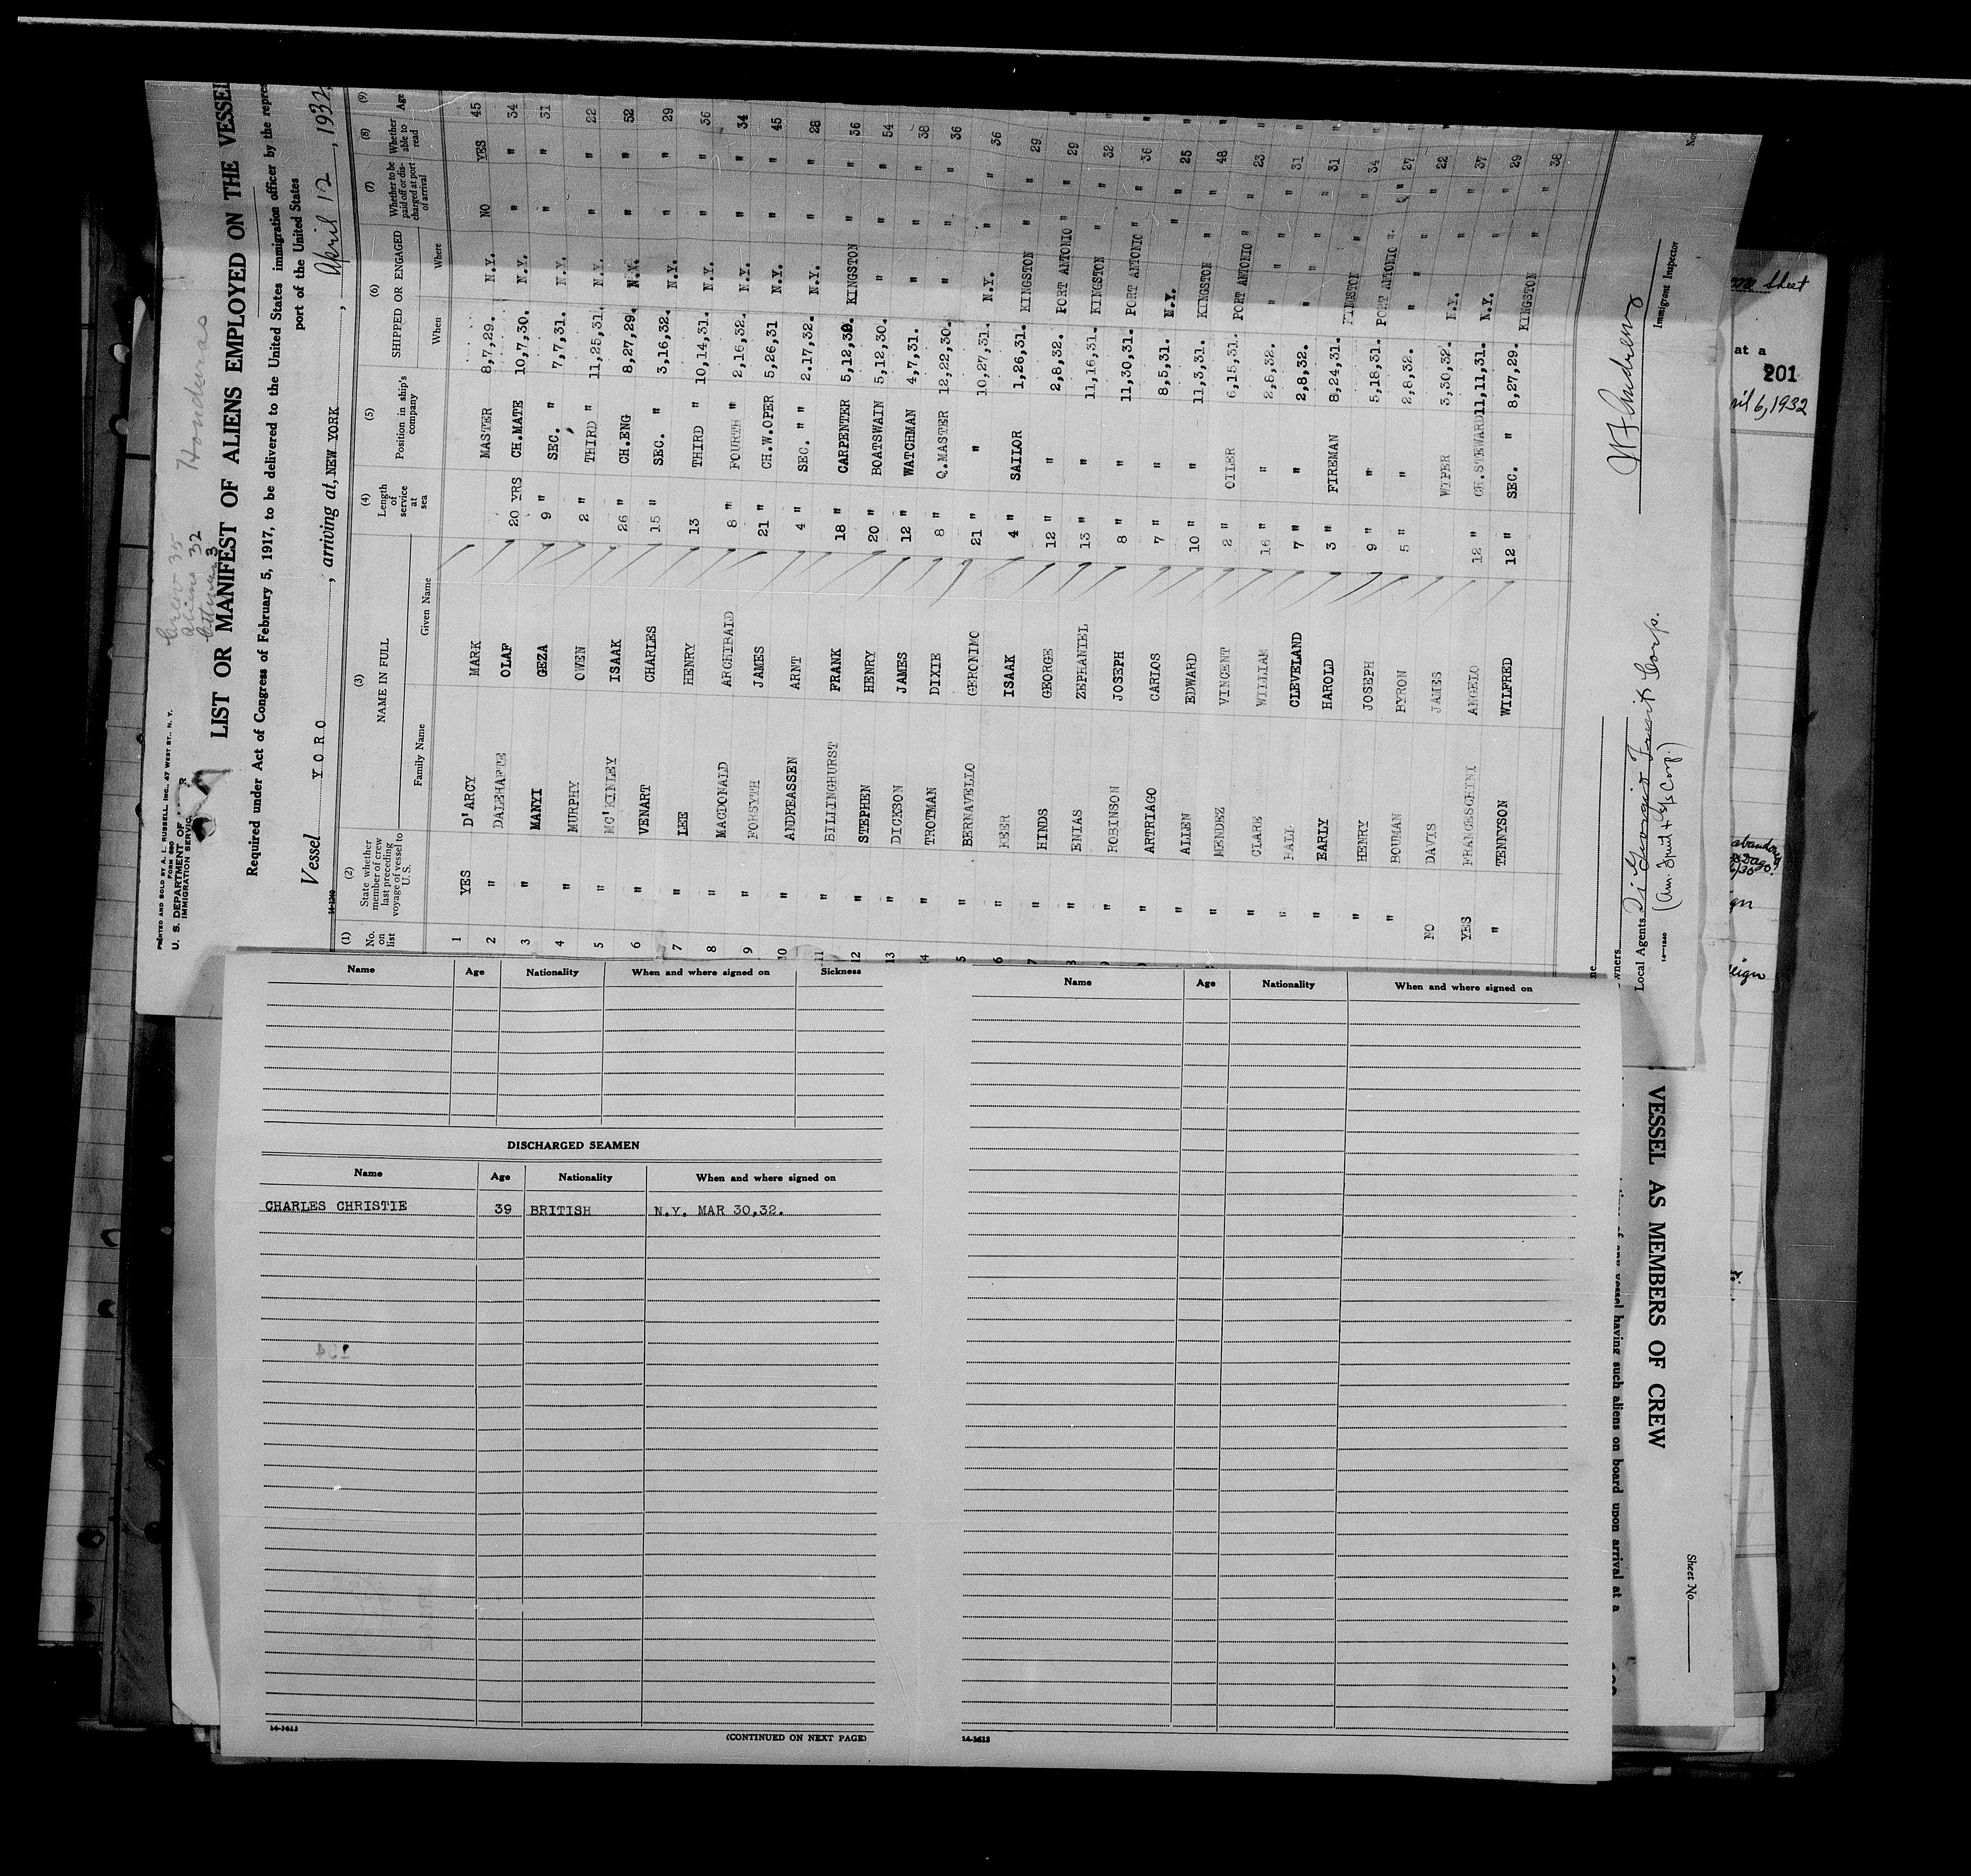 PRINTED AND SOLD BY A. L. RUSSELL, INC., 47 WEST ST., N. Y.
FORM 680
U. S. DEPARTMENT OF
IMMIGRATION SERVICE
Crew 35
Aliens 32
Citizens 3
Honduras
LIST OR MANIFEST OF ALIENS EMPLOYED ON THE VESSEL
Required under Act of Congress of February 5, 1917, to be delivered to the United States immigration officer by the repres
port of the United States
Vessel YORO, arriving at, NEW YORK, April 12, 1932,
14-1240
(1) (2) (3) (4) (5) (6) (7) (8) (9)
No. on list State whether member of crew last preceding voyage of vessel to U. S. NAME IN FULL Length of service at sea Position in ship's company SHIPPED OR ENGAGED Whether to be paid off or discharged at port of arrival Whether able to read Age
Family Name Given Name When Where
1 YES D'ARCY MARK MASTER 8,7,29. N.Y. NO YES 45
2 " DALEHAFTE OLAF 20 YRS CH.MATE 10,7,30. N.Y. " " 34
3 " MANYI GEZA 9 " SEC. " 7,7,31. N.Y. " " 31
4 " MURPHY OWEN 2 " THIRD " 11,25,31. N.Y. " " 22
5 " MC'KINLEY ISAAK 26 " CH.ENG 8,27,29. N.Y. " " 52
6 " VENART CHARLES 15 " SEC. " 3,16,32. N.Y. " " 29
7 " LEE HENRY 13 THIRD " 10,14,31. N.Y. " " 36
8 " MACDONALD ARCHIBALD 8 " FOURTH " 2,16,32. N.Y. " " 34
9 " FORSYTH JAMES 21 " CH.W.OPER 5,26,31 N.Y. " " 45
10 " ANDREASSEN ARNT 4 " SEC. " " 2.17,32. N.Y. " " 28
11 " BILLINGHURST FRANK 18 " CARPENTER 5,12,30. KINGSTON " " 36
12 " STEPHEN HENRY 20 " BOATSWAIN 5,12,30. " " " 54
13 " DICKSON JAMES 12 " WATCHMAN 4,7,31. " " " 38
14 " TROTMAN DIXIE 8 " Q.MASTER 12,22,30. " " " 36
5 " BERNAVELLO GERONIMO 21 " " 10,27,31. N.Y. " " 36
6 " KEER ISAAK 4 " SAILOR 1,26,31. KINGSTON " " 29
7 " HINDS GEORGE 12 " " 2,8,32. PORT ANTONIO " " 29
8 " ENIAS ZEPHANIEL 13 " " 11,16,31. KINGSTON " " 32
9 " ROBINSON JOSEPH 8 " " 11,30,31. PORT ANTONIO " " 36
" ARTRIAGO CARLOS 7 " " 8,5,31. N.Y. " " 25
" ALLEN EDWARD 10 " " 11,3,31. KINGSTON " " 48
" MENDEZ VINCENT 2 " OILER 6,15,31. PORT ANTONIO " " 23
" CLARE WILLIAM 16 " " 2,8,32. " " " 31
" HALL CLEVELAND 7 " " 2,8,32. " " " 31
" EARLY HAROLD 3 " FIREMAN 8,24,31. KINGSTON " " 34
" HENRY JOSEPH 9 " " 5,18,31. PORT ANTONIO " " 27
" BOUMAN BYRON 5 " " 2,8,32. " " " 22
NO DAVIS JAMES WIPER 3,30,32. N.Y. " " 37
YES FRANCESCHINI ANGELO 12 " CH.STEWARD 11,11,31. N.Y. " " 29
" TENNYSON WILFRED 12 " SEC. " 8,27,29. KINGSTON " " 38
wners
Local Agents Di Giorgio Fruit Corp.
(Am. Fruit & S/S Corp.)
Immigrant Inspector
14-1240
Sheet
at a
201
ril 6, 1932
eign
Name Age Nationality When and where signed on Sickness
DISCHARGED SEAMEN
Name Age Nationality When and where signed on
CHARLES CHRISTIE 39 BRITISH N.Y. MAR 30,32.
14-1613
(CONTINUED ON NEXT PAGE)
Name Age Nationality When and where signed on
14-1613
VESSEL AS MEMBERS OF CREW
vessel having such aliens on board upon arrival at a
Sheet No.